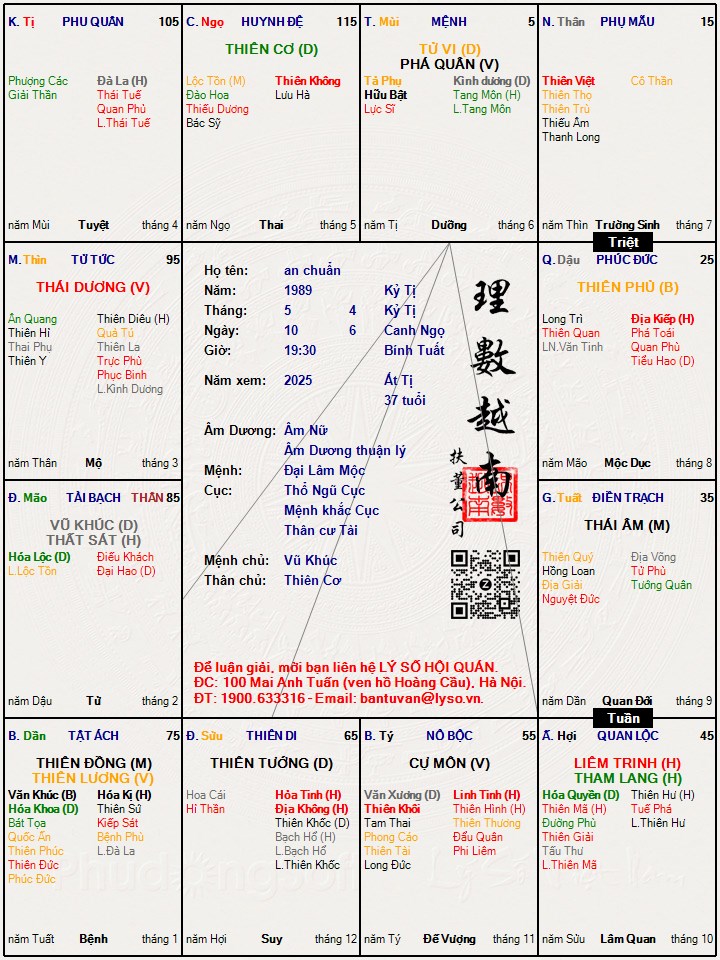 K. Tị PHU QUÂN 105
Phượng Các
Giải Thần
Đà La (H)
Thái Tuế
Quan Phủ
L.Thái Tuế
năm Mùi Tuyệt tháng 4
C. Ngọ HUYNH ĐỆ 115
THIÊN CƠ (D)
Lộc Tồn (M)
Đào Hoa
Thiếu Dương
Bác Sỹ
Thiên Không
Lưu Hà
năm Ngọ Thai tháng 5
T. Mùi MỆNH 5
TỬ VI (D)
PHÁ QUÂN (V)
Tả Phụ
Hữu Bật
Lực Sĩ
Kình dương (D)
Tang Môn (H)
L.Tang Môn
năm Tị Dưỡng tháng 6
N. Thân PHỤ MẪU 15
Thiên Việt
Thiên Thọ
Thiên Trù
Thiếu Âm
Thanh Long
Cô Thần
năm Thìn Trường Sinh tháng 7
Triệt
M. Thìn TỬ TỨC 95
THÁI DƯƠNG (V)
Ân Quang
Thiên Hỉ
Thai Phụ
Thiên Y
Thiên Diêu (H)
Quả Tú
Thiên La
Trực Phù
Phục Binh
L.Kình Dương
năm Thân Mộ tháng 3
Họ tên: an chuẩn
Năm: 1989 Kỷ Tị
Tháng: 5 4 Kỷ Tị
Ngày: 10 6 Canh Ngọ
Giờ: 19:30 Bính Tuất
Năm xem: 2025 Ất Tị
37 tuổi
Âm Dương: Âm Nữ
Âm Dương thuận lý
Mệnh: Đại Lâm Mộc
Cục: Thổ Ngũ Cục
Mệnh khắc Cục
Thân cư Tài
Mệnh chủ: Vũ Khúc
Thân chủ: Thiên Cơ
理數越南
扶董公司
Để luận giải, mời bạn liên hệ LÝ SỐ HỘI QUÁN.
ĐC: 100 Mai Anh Tuấn (ven hồ Hoàng Cầu), Hà Nội.
ĐT: 1900.633316 - Email: bantuvan@lyso.vn.
Q. Dậu PHÚC ĐỨC 25
THIÊN PHỦ (B)
Long Trì
Thiên Quan
LN.Văn Tinh
Địa Kiếp (H)
Phá Toái
Quan Phù
Tiểu Hao (D)
năm Mão Mộc Dục tháng 8
Đ. Mão TÀI BẠCH THÂN 85
VŨ KHÚC (D)
THẤT SÁT (H)
Hóa Lộc (D)
L.Lộc Tồn
Điếu Khách
Đại Hao (D)
năm Dậu Tử tháng 2
G. Tuất ĐIỀN TRẠCH 35
THÁI ÂM (M)
Thiên Quý
Hồng Loan
Địa Giải
Nguyệt Đức
Địa Võng
Tử Phù
Tướng Quân
năm Dần Quan Đới tháng 9
Tuần
B. Dần TẬT ÁCH 75
THIÊN ĐỒNG (M)
THIÊN LƯƠNG (V)
Văn Khúc (B)
Hóa Khoa (D)
Bát Tọa
Quốc Ấn
Thiên Phúc
Thiên Đức
Phúc Đức
Hóa Kị (H)
Thiên Sứ
Kiếp Sát
Bệnh Phù
L.Đà La
năm Tuất Bệnh tháng 1
Đ. Sửu THIÊN DI 65
THIÊN TƯỚNG (D)
Hoa Cái
Hỉ Thần
Hỏa Tinh (H)
Địa Không (H)
Thiên Khốc (D)
Bạch Hổ (H)
L.Bạch Hổ
L.Thiên Khốc
năm Hợi Suy tháng 12
B. Tý NÔ BỘC 55
CỰ MÔN (V)
Văn Xương (D)
Thiên Khôi
Tam Thai
Phong Cáo
Thiên Tài
Long Đức
Linh Tinh (H)
Thiên Hình (H)
Thiên Thương
Đẩu Quân
Phi Liêm
năm Tý Đế Vượng tháng 11
Ấ. Hợi QUAN LỘC 45
LIÊM TRINH (H)
THAM LANG (H)
Hóa Quyền (D)
Thiên Mã (H)
Đường Phù
Thiên Giải
Tấu Thư
L.Thiên Mã
Thiên Hư (H)
Tuế Phá
L.Thiên Hư
năm Sửu Lâm Quan tháng 10